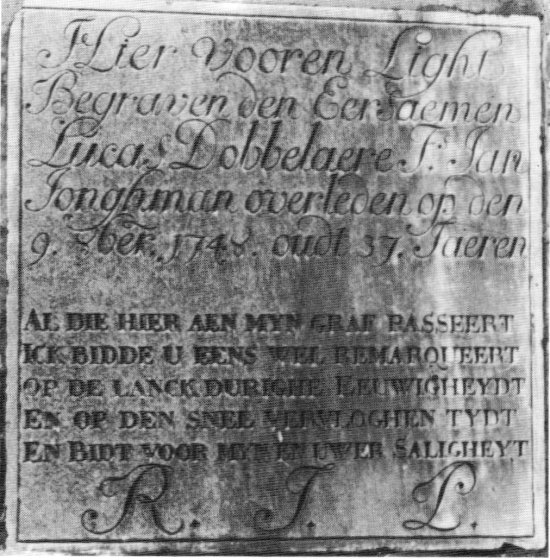 Hier vooren Light
Begraven den Eersaemen
Lucas Dobbelaere F.s Jan
Jonghman overleden op den
9. 8ber. 1748. oudt 37. Jaeren
AL DIE HIER AEN MYN GRAF PASSEERT
ICK BIDDE U EENS WEL REMARQUEERT
OP DE LANCK DURIGHE EEUWIGHEYDT
EN OP DEN SNEL VERVLOGHEN TYDT
EN BIDT VOOR MYN EN UWER SALIGHEYT
R. J. P.